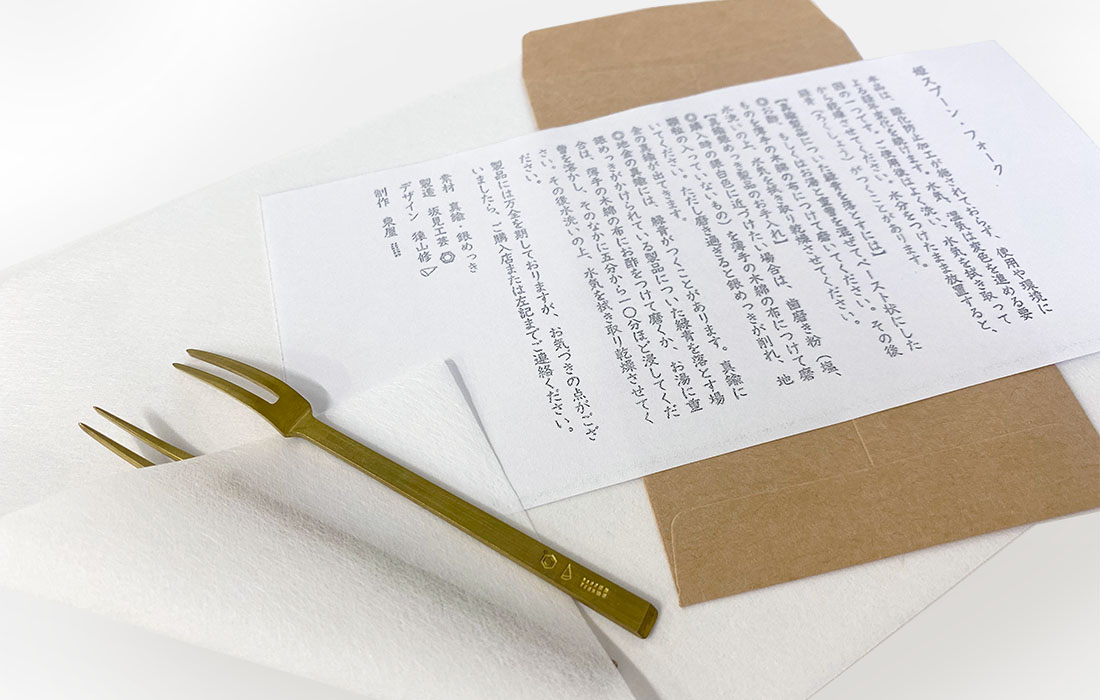 姫スプーン・フォーク
本品は、酸化防止加工が施されておらず、使用や環境に
よる経年変化を続けます。水気、湿気は変色を進める要
因の一つです。ご使用後はよく洗い、水気を拭き取って
から乾燥させてください。水分をつけたまま放置すると、
緑青(ろくしょう)がつくことがあります。
【真鍮製品についた緑青を落とすには】
◎お酢、もしくはお湯と重曹を混ぜてペースト状にした
ものを薄手の木綿の布につけて磨いてください。その後
水洗いの上、水気を拭き取り乾燥させてください。
【真鍮銀めっき製品のお手入れ】
◎購入時の銀白色に近づけたい場合は、歯磨き粉(塩、
顆粒の入っていないもの)を薄手の木綿の布につけて磨
いてください。ただし磨き過ぎると銀めっきが削れ、地
金の真鍮が出てきます。
◎地金の真鍮には、緑青がつくことがあります。真鍮に
銀めっきがかけられている製品についた緑青を落とす場
合は、薄手の木綿の布にお酢をつけて磨くか、お湯に重
曹を溶かし、そのなかに五分から一〇分ほど浸してくだ
さい。その後水洗いの上、水気を拭き取り乾燥させてく
ださい。
製品には万全を期しておりますが、お気づきの点がござ
いましたら、ご購入店または左記までご連絡ください。
素材 真鍮・銀めっき
製造 坂見工芸
デザイン 猿山修
制作 東屋